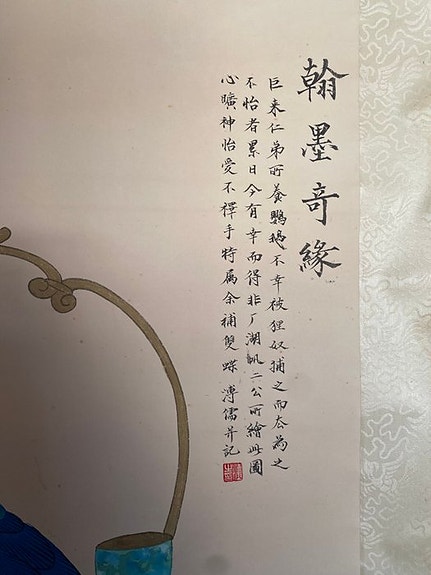 翰墨奇緣
巨来仁弟所養鸚鵡不幸被狸奴捕之而去為之
不怡者累日今有幸而得非厂湖帆二公所繪此圖
心曠神怡愛不釋手特屬余補雙蝶 溥儒并記